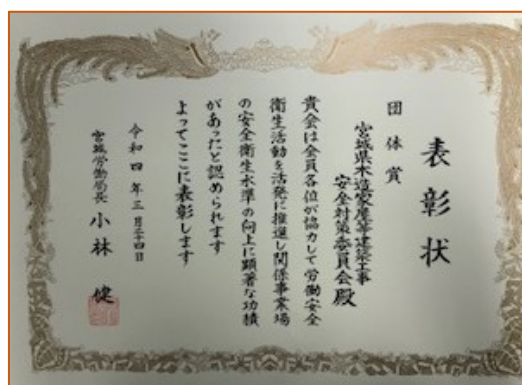 表彰状
団体賞
宮城県木造家屋等建築工事
安全対策委員会殿
貴会は全員各位が協力して労働安全
衛生活動を活発に推進し関係事業場
の安全衛生水準の向上に顕著な功績
があったと認められます
よってここに表彰します
令和四年三月二十四日
宮城労働局長 小林 健